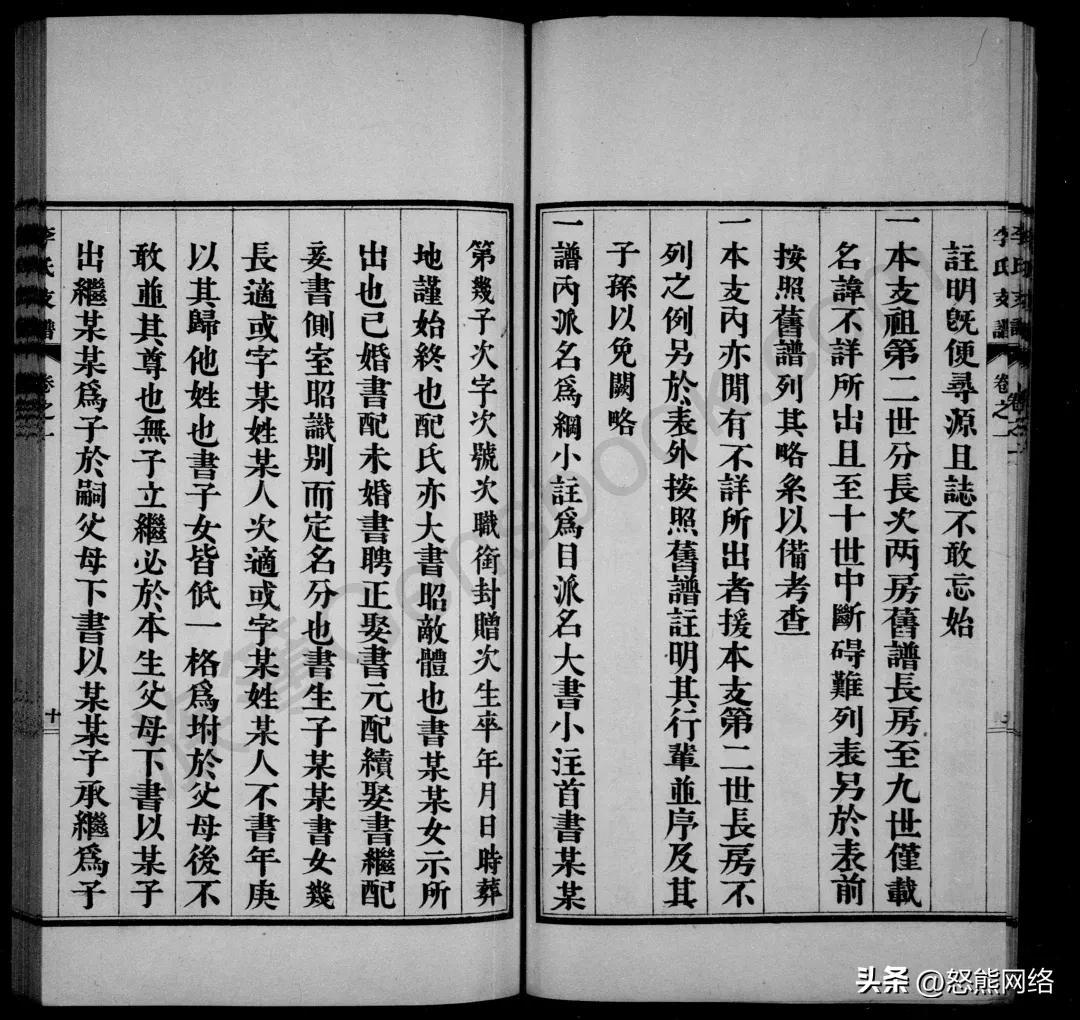 李氏支譜
卷之一
註明旣便尋源且誌不敢忘始
一本支祖第二世分長次兩房舊譜長房至九世僅載
名諱不詳所出且至十世中斷碍難列表另於表前
按照舊譜列其略系以備考查
一本支內亦閒有不詳所出者援本支第二世長房不
列之例另於表外按照舊譜註明其行輩並序及其
子孫以免闕略
一譜內派名爲綱小註爲目派名大書小注首書某某
第幾子次字次號次職銜封贈次生卒年月日時葬
地謹始終也配氏亦大書昭敵體也書某某女示所
出也已婚書配未婚書聘正娶書元配續娶書繼配
妾書側室昭識别而定名分也書生子某某書女幾
長適或字某姓某人次適或字某姓某人不書年庚
以其歸他姓也書子女皆低一格爲坿於父母後不
敢並其尊也無子立繼必於本生父母下書以某子
出繼某某爲子於嗣父母下書以某某子承繼爲子
李氏支譜
卷之一
十三
头条 @怒熊网络